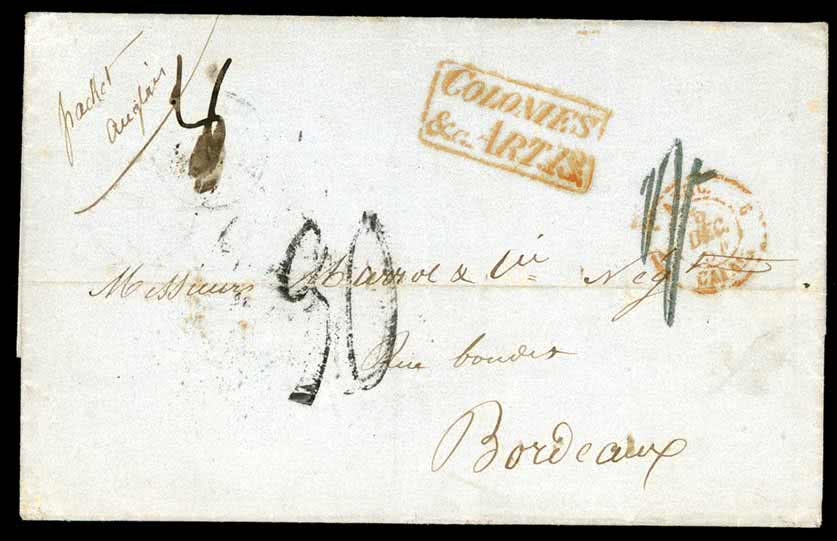 packet
anglais
4
COLONIES
&c. ART 13
Messieurs Marrot & Cie Negts
30
Rue boudet
Bordeaux
DEC.
CALAIS